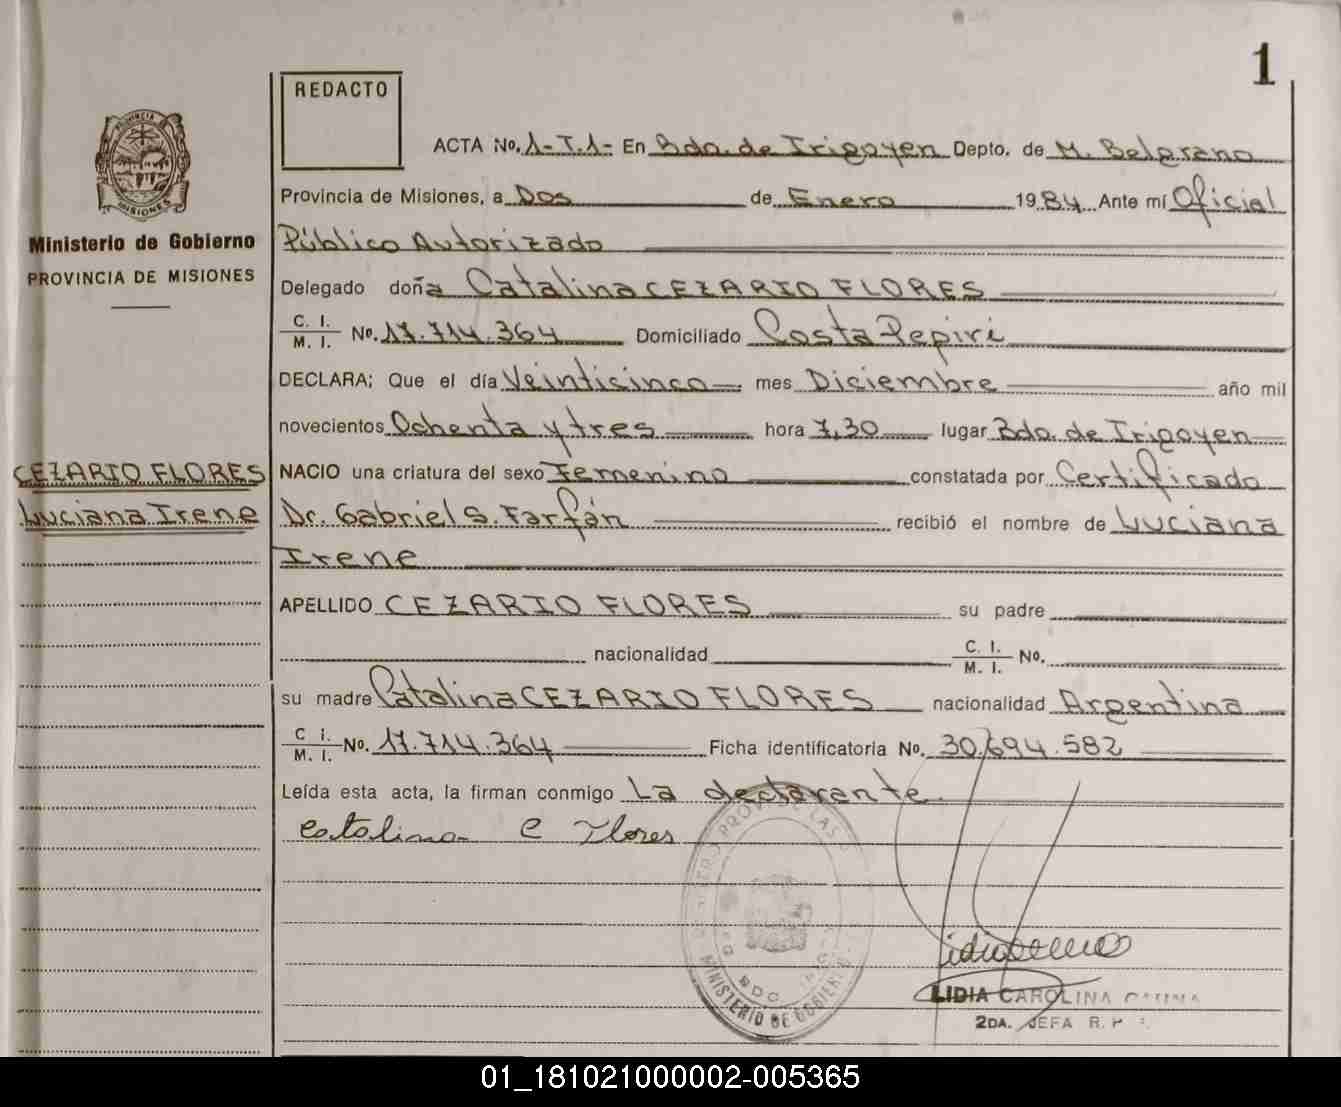 1
REDACTO
PROVINCIA
MISIONES
Ministerio de Gobierno
PROVINCIA DE MISIONES
ACTA No. 1-T.1- En Bdo. de Irigoyen Depto. de M. Belgrano
Provincia de Misiones, a Dos de Enero 1984 Ante mí Oficial
Público Autorizado
Delegado doña Catalina CEZARIO FLORES
C. I.
M. I. No. 17.714.364 Domiciliado Costa Pepirí
DECLARA; Que el día Veinticinco mes Diciembre año mil
novecientos Ochenta y tres hora 7,30 lugar Bdo. de Irigoyen
CEZARIO FLORES
Luciana Irene
NACIO una criatura del sexo Femenino constatada por Certificado
Dr. Gabriel S. Farfán recibió el nombre de Luciana
Irene
APELLIDO CEZARIO FLORES su padre
nacionalidad C. I.
M. I. No.
su madre Catalina CEZARIO FLORES nacionalidad Argentina
C i.
M. I. No. 17.714.364 Ficha identificatoria No. 30.694.582
Leída esta acta, la firman conmigo La declarante.
Catalina C Flores
MINISTERIO DE GOBIERNO
LIDIA CAROLINA
2DA. JEFA R.
01_181021000002-005365